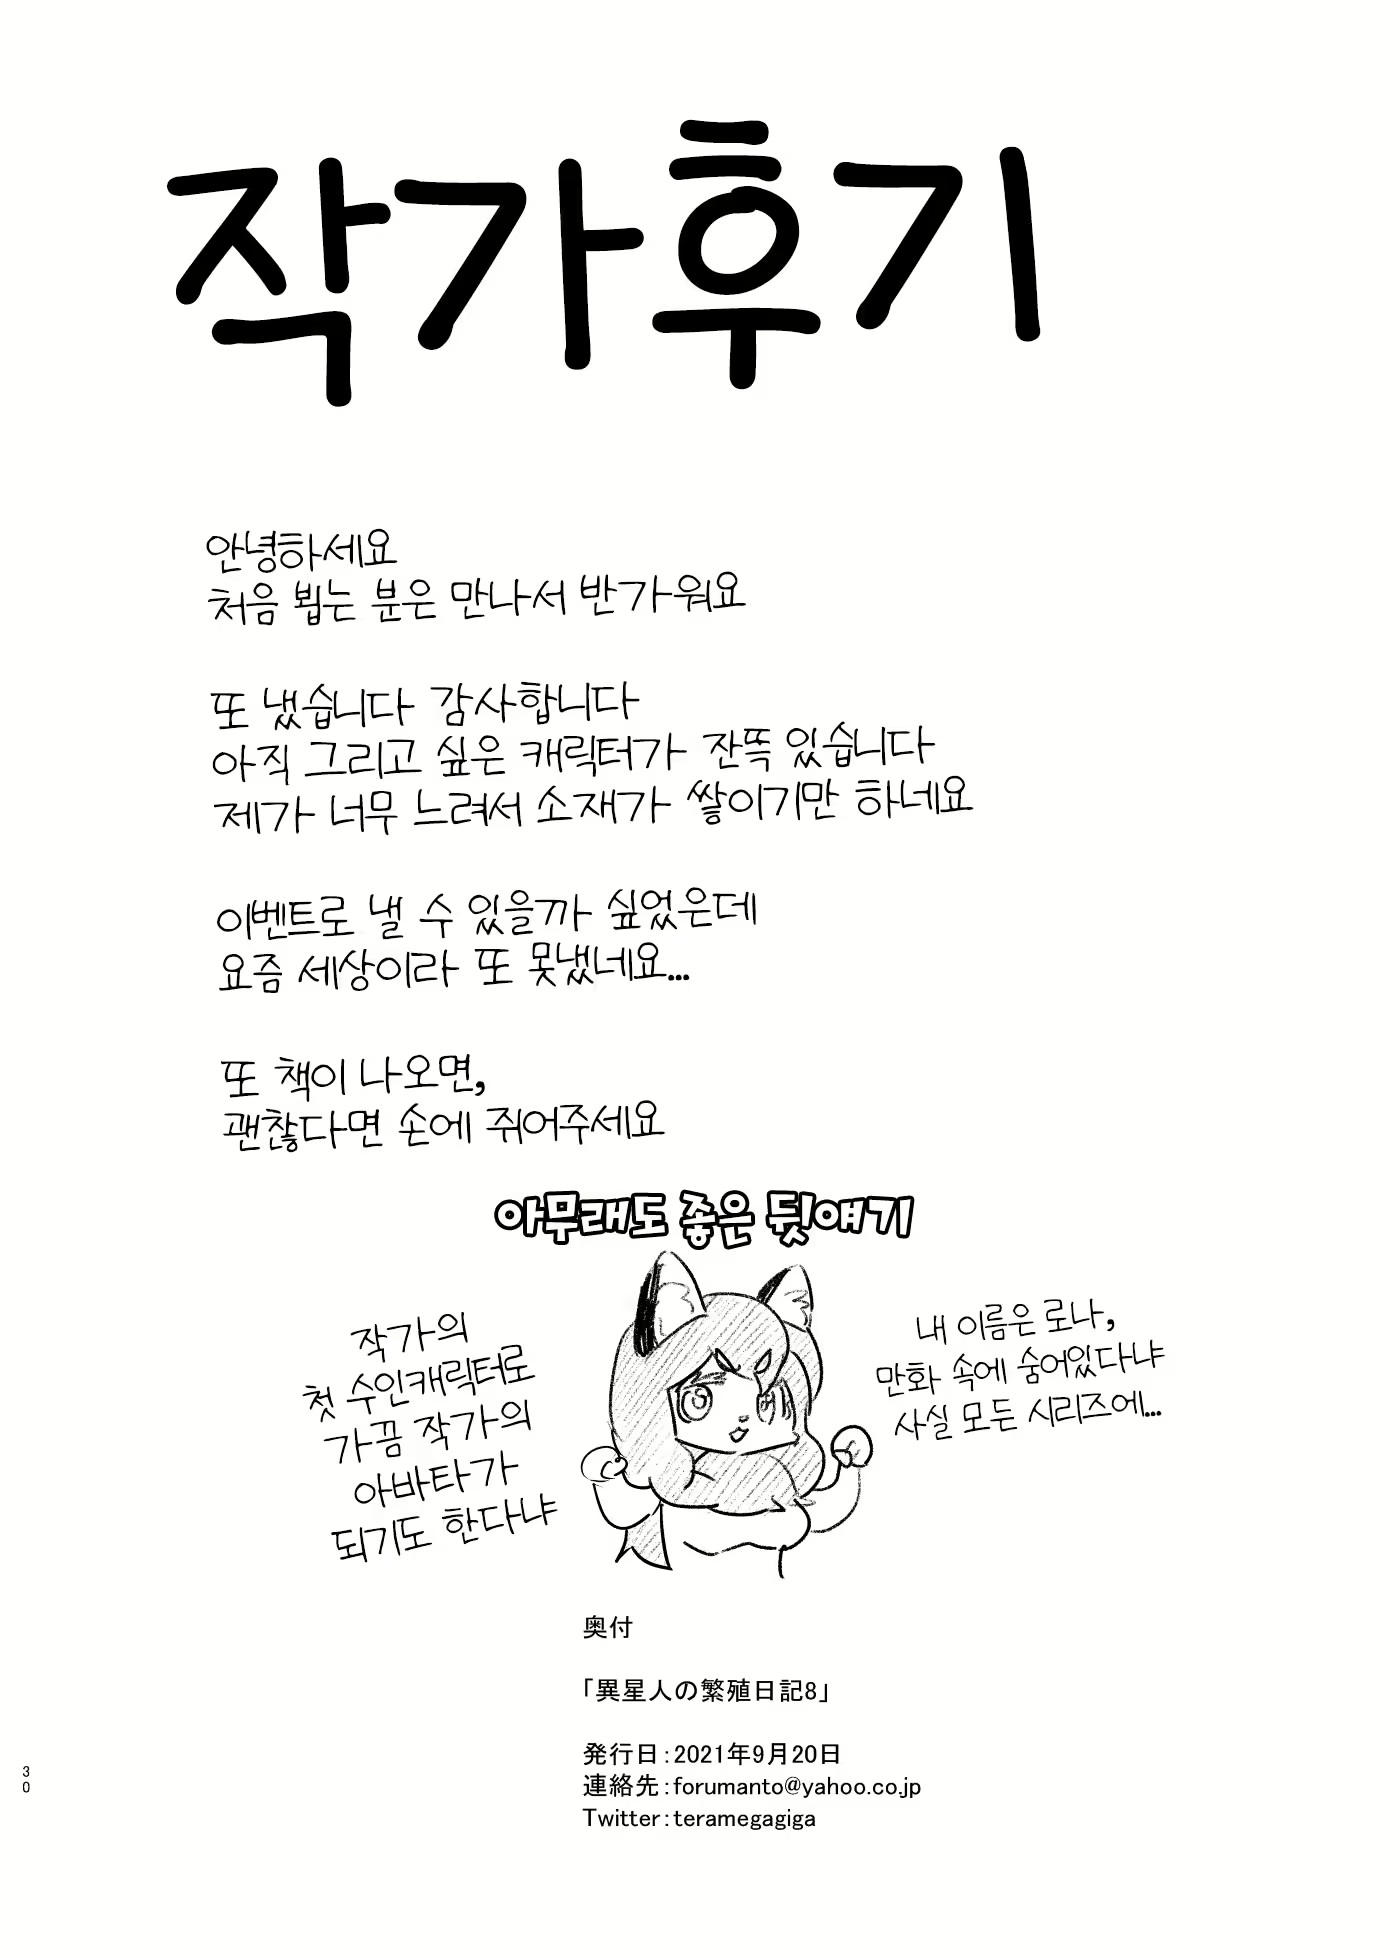 작가후기
안녕하세요
처음 뵙는 분은 만나서 반가워요
또 냈습니다 감사합니다
아직 그리고 싶은 캐릭터가 잔뜩 있습니다
제가 너무 느려서 소재가 쌓이기만 하네요
이벤트로 낼 수 있을까 싶었은데
요즘 세상이라 또 못냈네요...
또 책이 나오면,
괜찮다면 손에 쥐어주세요
아무래도 좋은 뒷얘기
작가의
첫 수인캐릭터로
가끔 작가의
아바타가
되기도 한다냐
내 이름은 로나,
만화 속에 숨어있다냐
사실 모든 시리즈에...
奥付
「異星人の繁殖日記8」
発行日：2021年9月20日
連絡先：forumanto@yahoo.co.jp
Twitter：teramegagiga
30